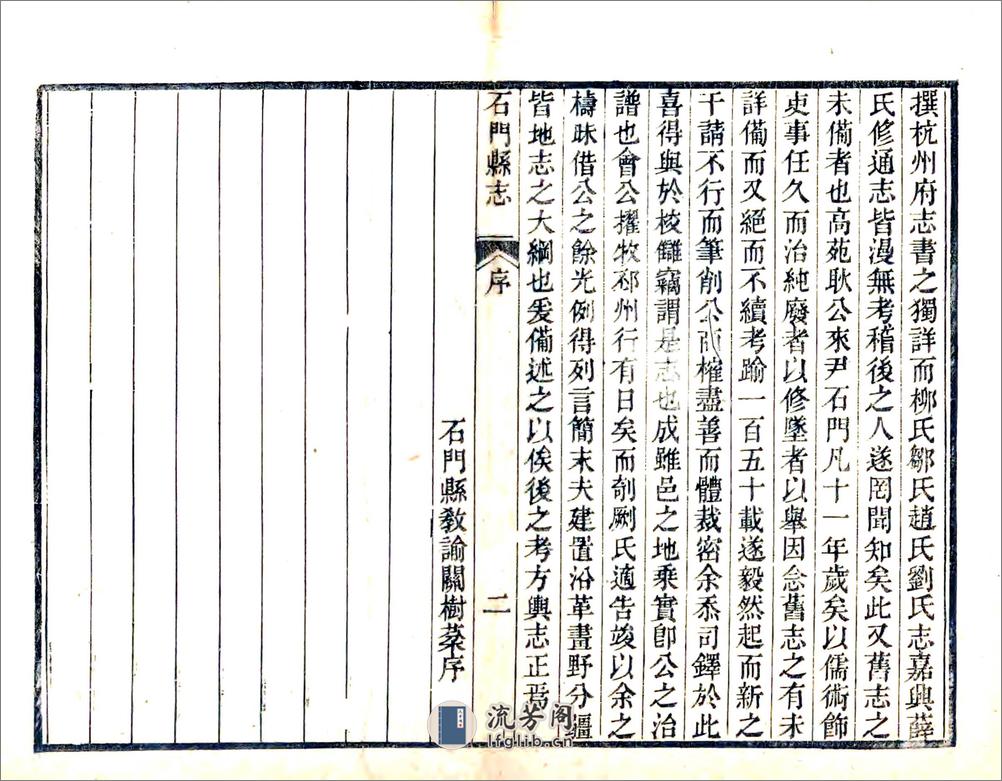 撰杭州府志書之獨詳而柳氏鄒氏趙氏劉氏志嘉興薛
氏修通志皆漫無考稽後之人遂罔聞知矣此又舊志之
未備者也高苑耿公來尹石門凡十一年歲矣以儒術飾
吏事任久而治純廢者以修墜者以舉因念舊志之有未
詳備而又絕而不續考踰一百五十載遂毅然起而新之
干請不行而筆削公商榷盡善而體裁密余忝司鐸於此
喜得與於校讎竊謂是志也成雖邑之地乘實卽公之治
譜也會公擢牧邳州行有日矣而剞劂氏適告竣以余之
檮昧借公之餘光例得列言簡末夫建置沿革畫野分疆
皆地志之大綱也爰備述之以俟後之考方輿志正焉
石門縣教諭關樹棻序
石門縣志 序 二
流芳阁
lfglib.cn